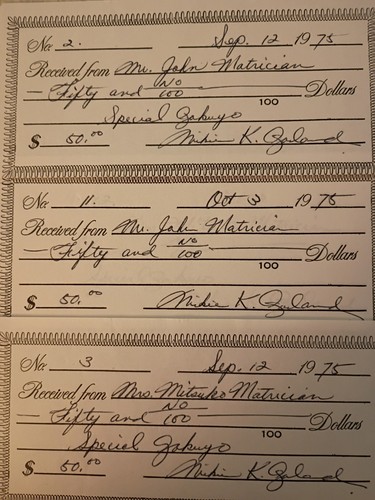 No. 2. Sep. 12 1975
Received from Mr. John Matrician
— Fifty and no/100 — Dollars
100
Special Gokuyo
$ 50.00 Michie K. Zuland
No. 11. Oct 3 1975
Received from Mr. John Matrician
— Fifty and no/100 — Dollars
100
$ 50.00 Michie K. Zuland
No. 3 Sep. 12 1975
Received from Mrs. Mitsuko Matrician
— Fifty and no/100 — Dollars
100
Special Gokuyo
$ 50.00 Michie K. Zuland